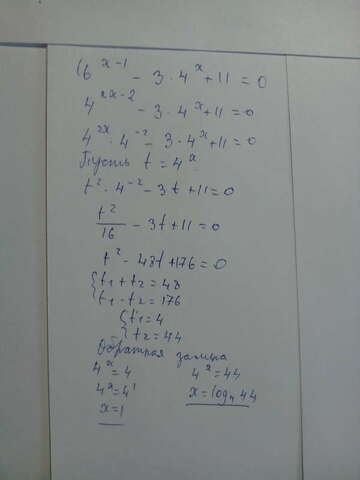 16^{x-1} - 3·4^x + 11 = 0
4^{2x-2} - 3·4^x + 11 = 0
4^{2x}·4^{-2} - 3·4^x + 11 = 0
Пусть t = 4^x
t^2·4^{-2} - 3t + 11 = 0
t^2/16 - 3t + 11 = 0
t^2 - 48t + 176 = 0
{t1 + t2 = 48
{t1·t2 = 176
{t1 = 4
{t2 = 44
Обратная замена
4^x = 4 4^x = 44
4^x = 4^1 x = log_4 44
x = 1